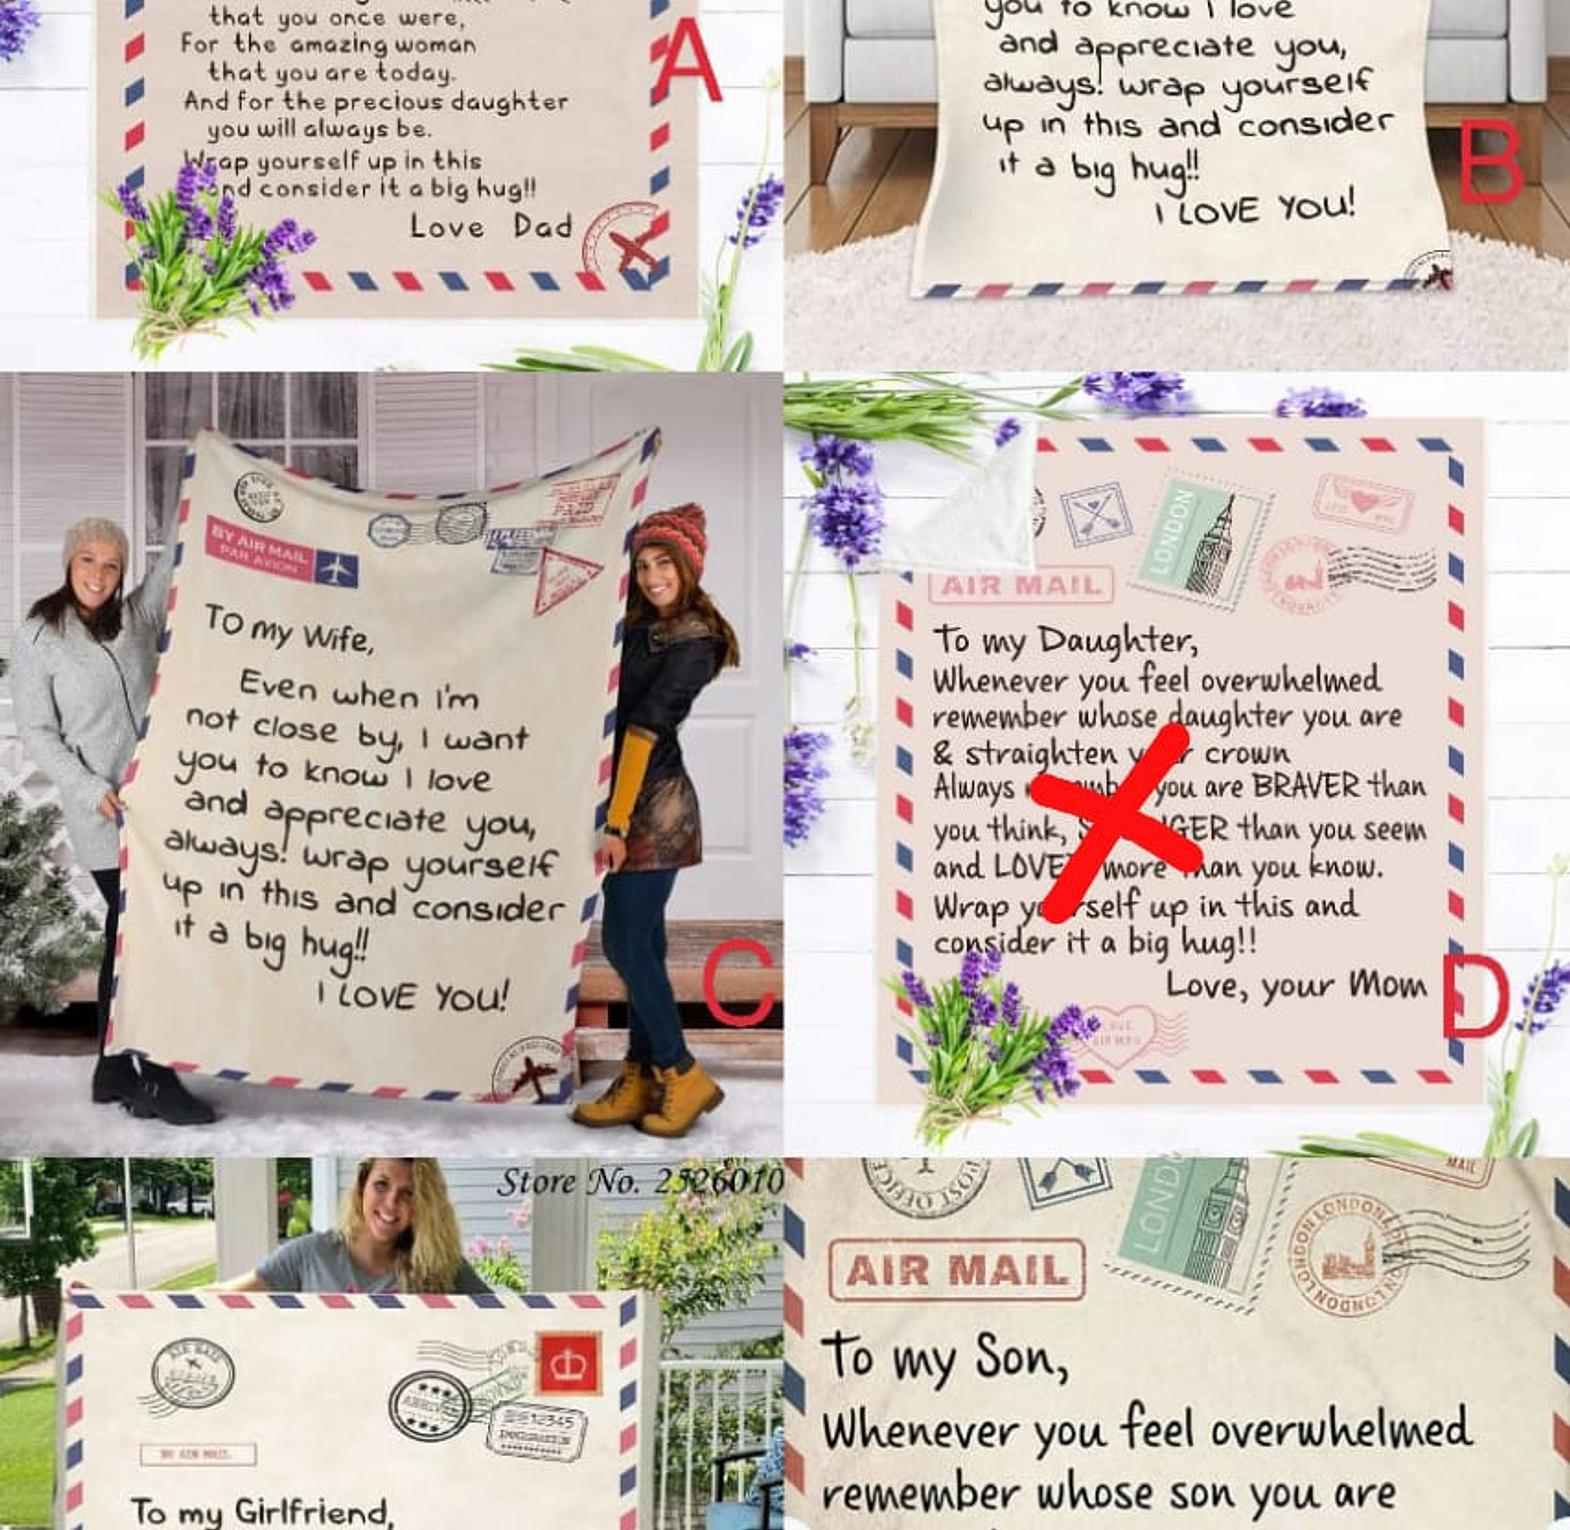 that you once were,
For the amazing woman
that you are today.
And for the precious daughter
you will always be.
Wrap yourself up in this
and consider it a big hug!!
Love Dad
A
you to know I love
and appreciate you,
always! wrap yourself
up in this and consider
it a big hug!!
I LOVE YOU!
B
BY AIR MAIL
PAR AVION
PAID
To my Wife,
Even when I'm
not close by, I want
you to know I love
and appreciate you,
always! wrap yourself
up in this and consider
it a big hug!!
I LOVE YOU!
C
LONDON
AIR MAIL
To my Daughter,
Whenever you feel overwhelmed
remember whose daughter you are
& straighten crown
Always you are BRAVER than
you think, than you seem
and more than you know.
Wrap yourself up in this and
consider it a big hug!!
Love, your Mom
LOVE
AIR MAIL
D
Store No. 2526010
AIR MAIL
12345
IMMIGRATION
BY AIR MAIL
To my Girlfriend,
POST OFFICE
LONDON
MAIL
AIR MAIL
LONDON LONDON LONDON
To my Son,
Whenever you feel overwhelmed
remember whose son you are